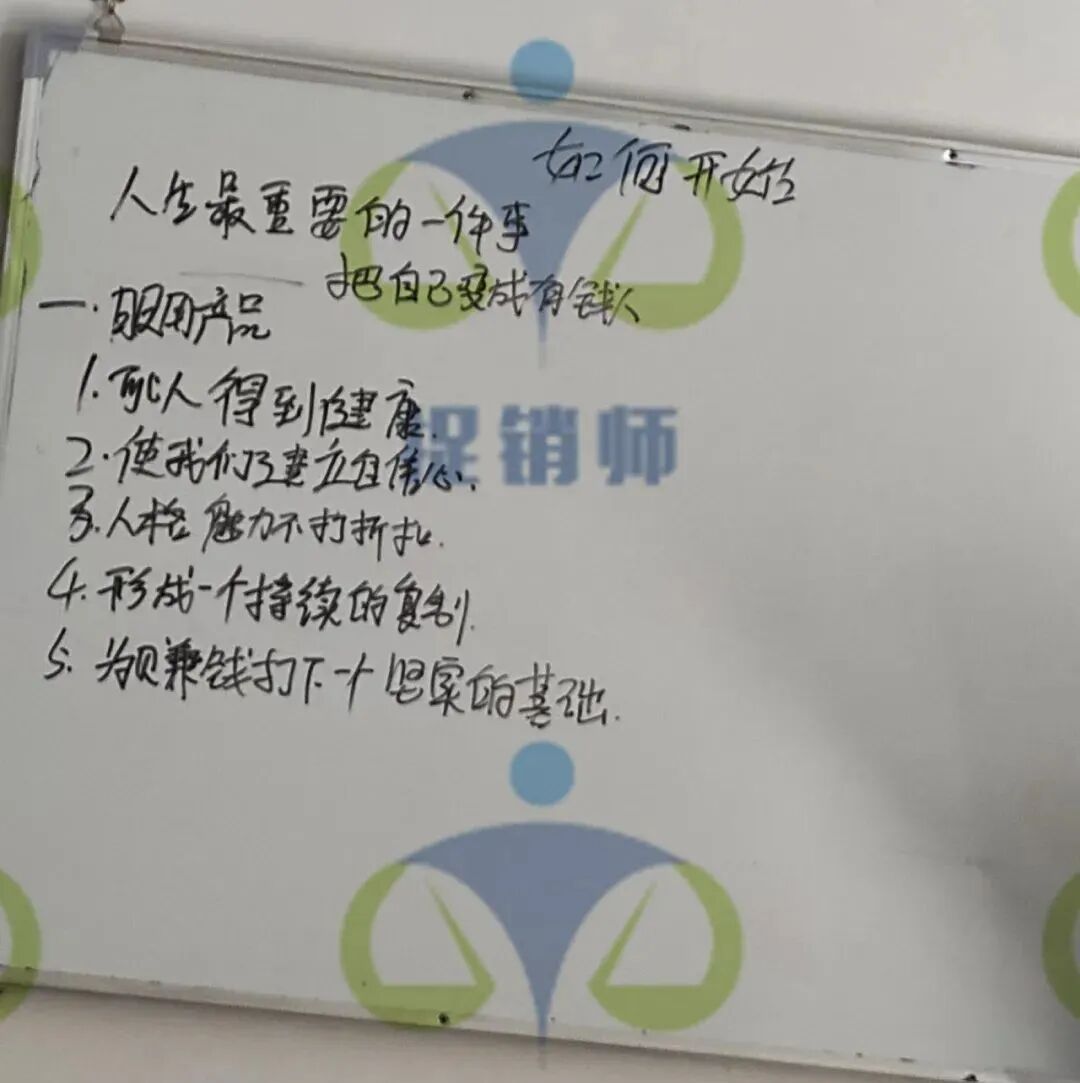 如何开始
人生最重要的一件事
把自己变成有钱人
一.服用产品
1.配人得到健康.
2.使我们建立自信心.
3.人格魅力不打折扣.
4.形成一个持续的复制.
5.为赚钱打下一个坚实的基础.
促销师